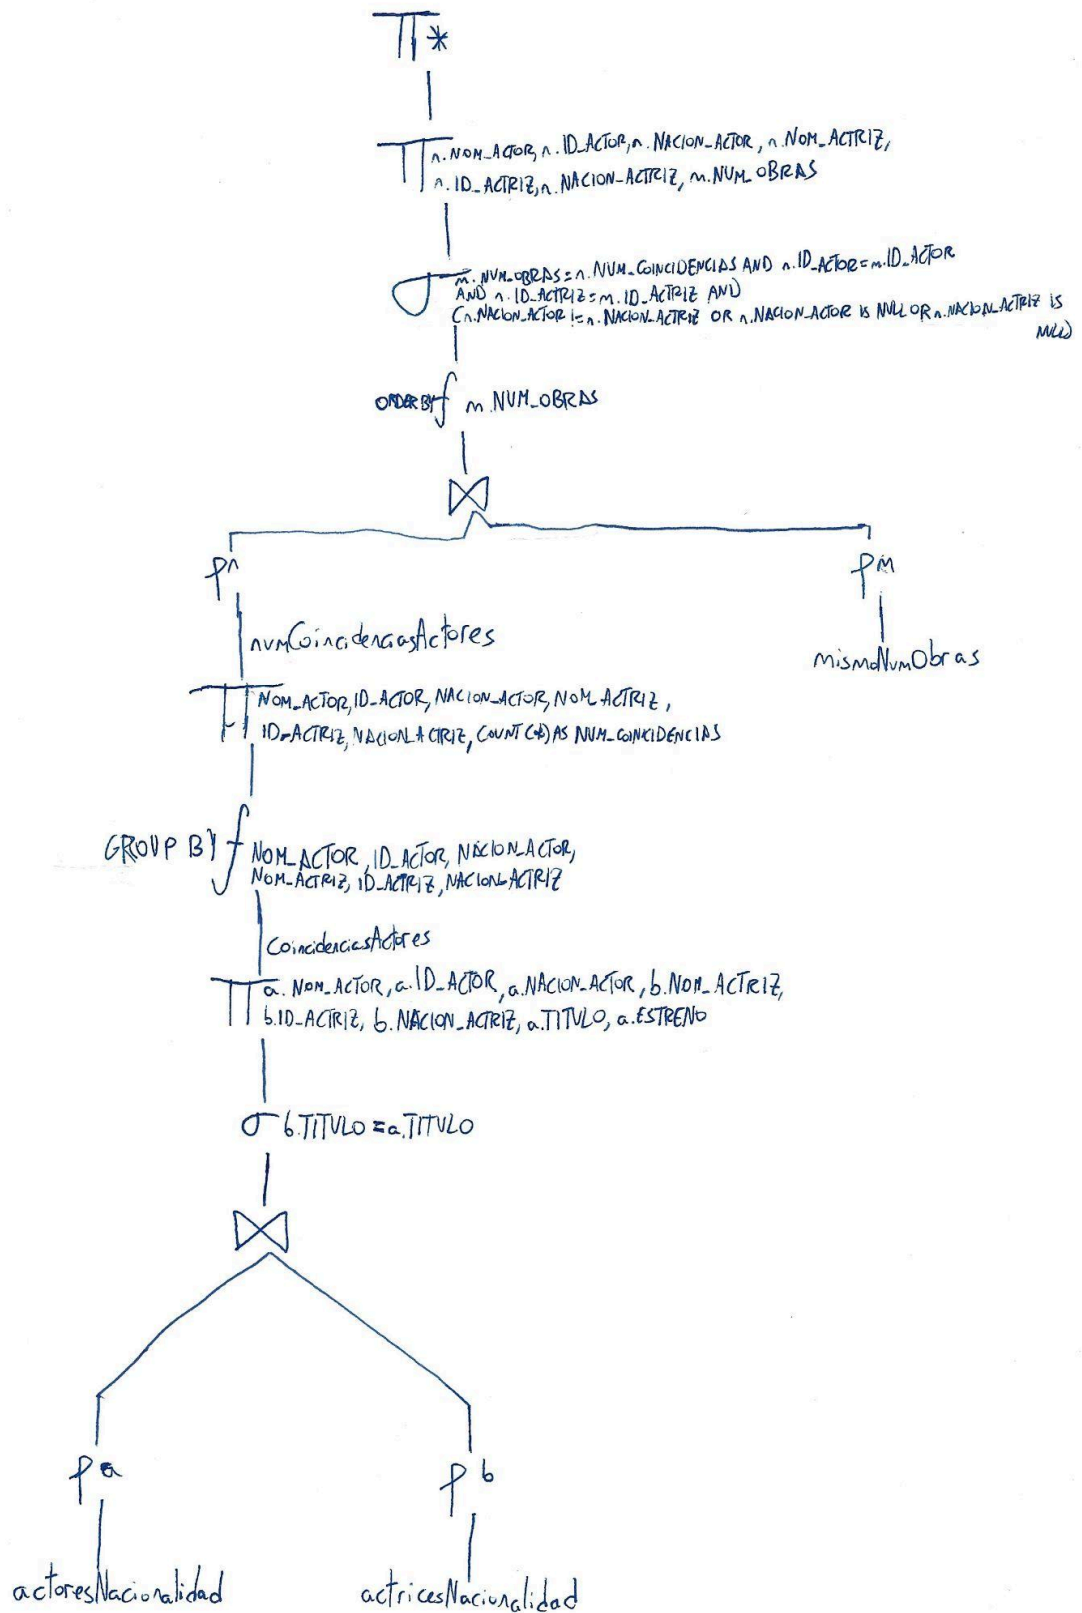 π *
π n.NOM_ACTOR, n.ID_ACTOR, n.NACION_ACTOR, n.NOM_ACTRIZ,
n.ID_ACTRIZ, n.NACION_ACTRIZ, m.NUM_OBRAS
σ m.NUM_OBRAS = n.NUM_COINCIDENCIAS AND n.ID_ACTOR = m.ID_ACTOR
AND n.ID_ACTRIZ = m.ID_ACTRIZ AND
(n.NACION_ACTOR != n.NACION_ACTRIZ OR n.NACION_ACTOR IS NULL OR n.NACION_ACTRIZ IS
NULL)
ORDER BY ƒ m.NUM_OBRAS
⋈
ρ n
ρ m
numCoincidenciasActores
mismoNumObras
π NOM_ACTOR, ID_ACTOR, NACION_ACTOR, NOM_ACTRIZ,
ID_ACTRIZ, NACION_ACTRIZ, COUNT(*) AS NUM_COINCIDENCIAS
GROUP BY ƒ NOM_ACTOR, ID_ACTOR, NACION_ACTOR,
NOM_ACTRIZ, ID_ACTRIZ, NACION_ACTRIZ
CoincidenciasActores
π a.NOM_ACTOR, a.ID_ACTOR, a.NACION_ACTOR, b.NOM_ACTRIZ,
b.ID_ACTRIZ, b.NACION_ACTRIZ, a.TITULO, a.ESTRENO
σ b.TITULO = a.TITULO
⋈
ρ a
ρ b
actoresNacionalidad
actricesNacionalidad